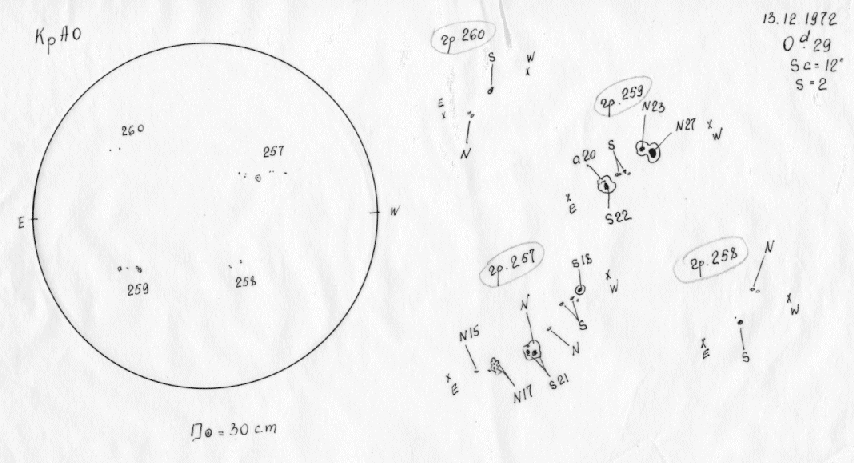 КрАО
260
257
E
W
259
258
D⊙ = 30 cm
13.12.1972
0ᵈ.29
Sc = 12"
S = 2
гр. 260
S
W
E
N
гр. 259
N23
N27
W
S
a20
E
S22
гр. 257
S18
W
N
S
N15
N
E
N17
S21
гр. 258
N
W
E
S